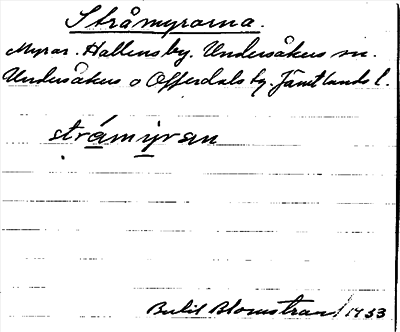 Stråmyrarna.
Myrar. Hallens by. Undersåkers sn.
Undersåkers o Offerdals by. Jämtlands l.
stråmyran
Blomstrand 1933